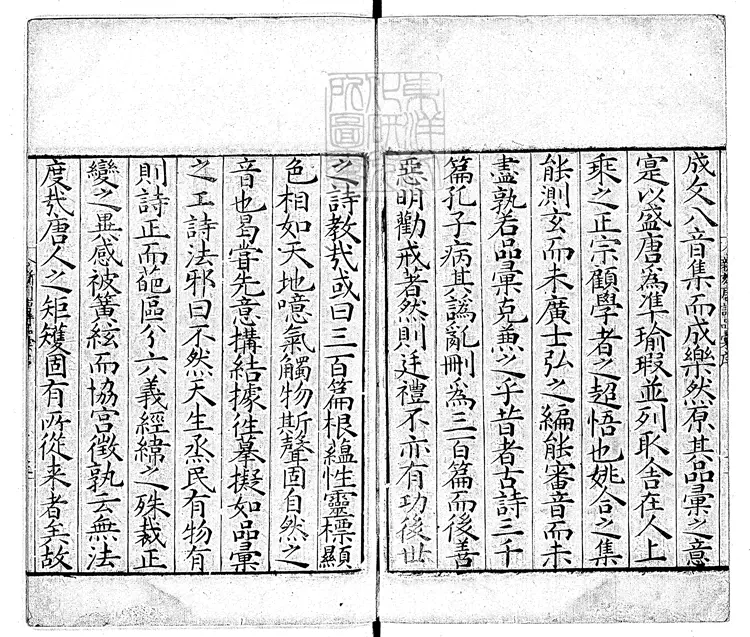 成文八音集而成樂然原其品彙之意
寔以盛唐為準瑜瑕並列取舍在人上
乘之正宗顧學者之超悟也姚合之集
能測玄而未廣士弘之編能審音而未
盡孰若品彙克兼之乎昔者古詩三千
篇孔子病其譌亂刪為三百篇而後善
惡明勸戒著然則廷禮不亦有功後世
之詩教哉或曰三百篇根蘊性靈標顯
色相如天地噫氣觸物斯聲固自然之
音也曷嘗先意搆結據往摹擬如品彙
之工詩法邪曰不然天生烝民有物有
則詩正而葩區分六義經緯之殊裁正
變之異感被簧絃而協宮徵孰云無法
度哉唐人之矩矱固有所從来者矣故
東洋
化研
所圖